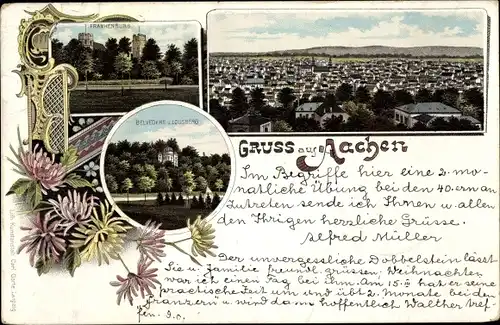 FRANKENBURG
BELVEDERE a. LOUSBERG
GRUSS aus Aachen
Im Begriffe hier eine 2. mo-
natliche Übung bei den 40.ern an
zutreten sende ich Ihnen u. allen
den Ihrigen herzliche Grüsse.
Alfred Müller
Der unvergessliche Dobbelstein lässt
Sie u. Familie freundl. grüssen. Weihnachten
war ich einen Tag bei ihm. Am 15. hat er seine
practische Zeit um und übt 2. Monate bei den
franzern u. wird da hoffentlich Walther tref-
fen.